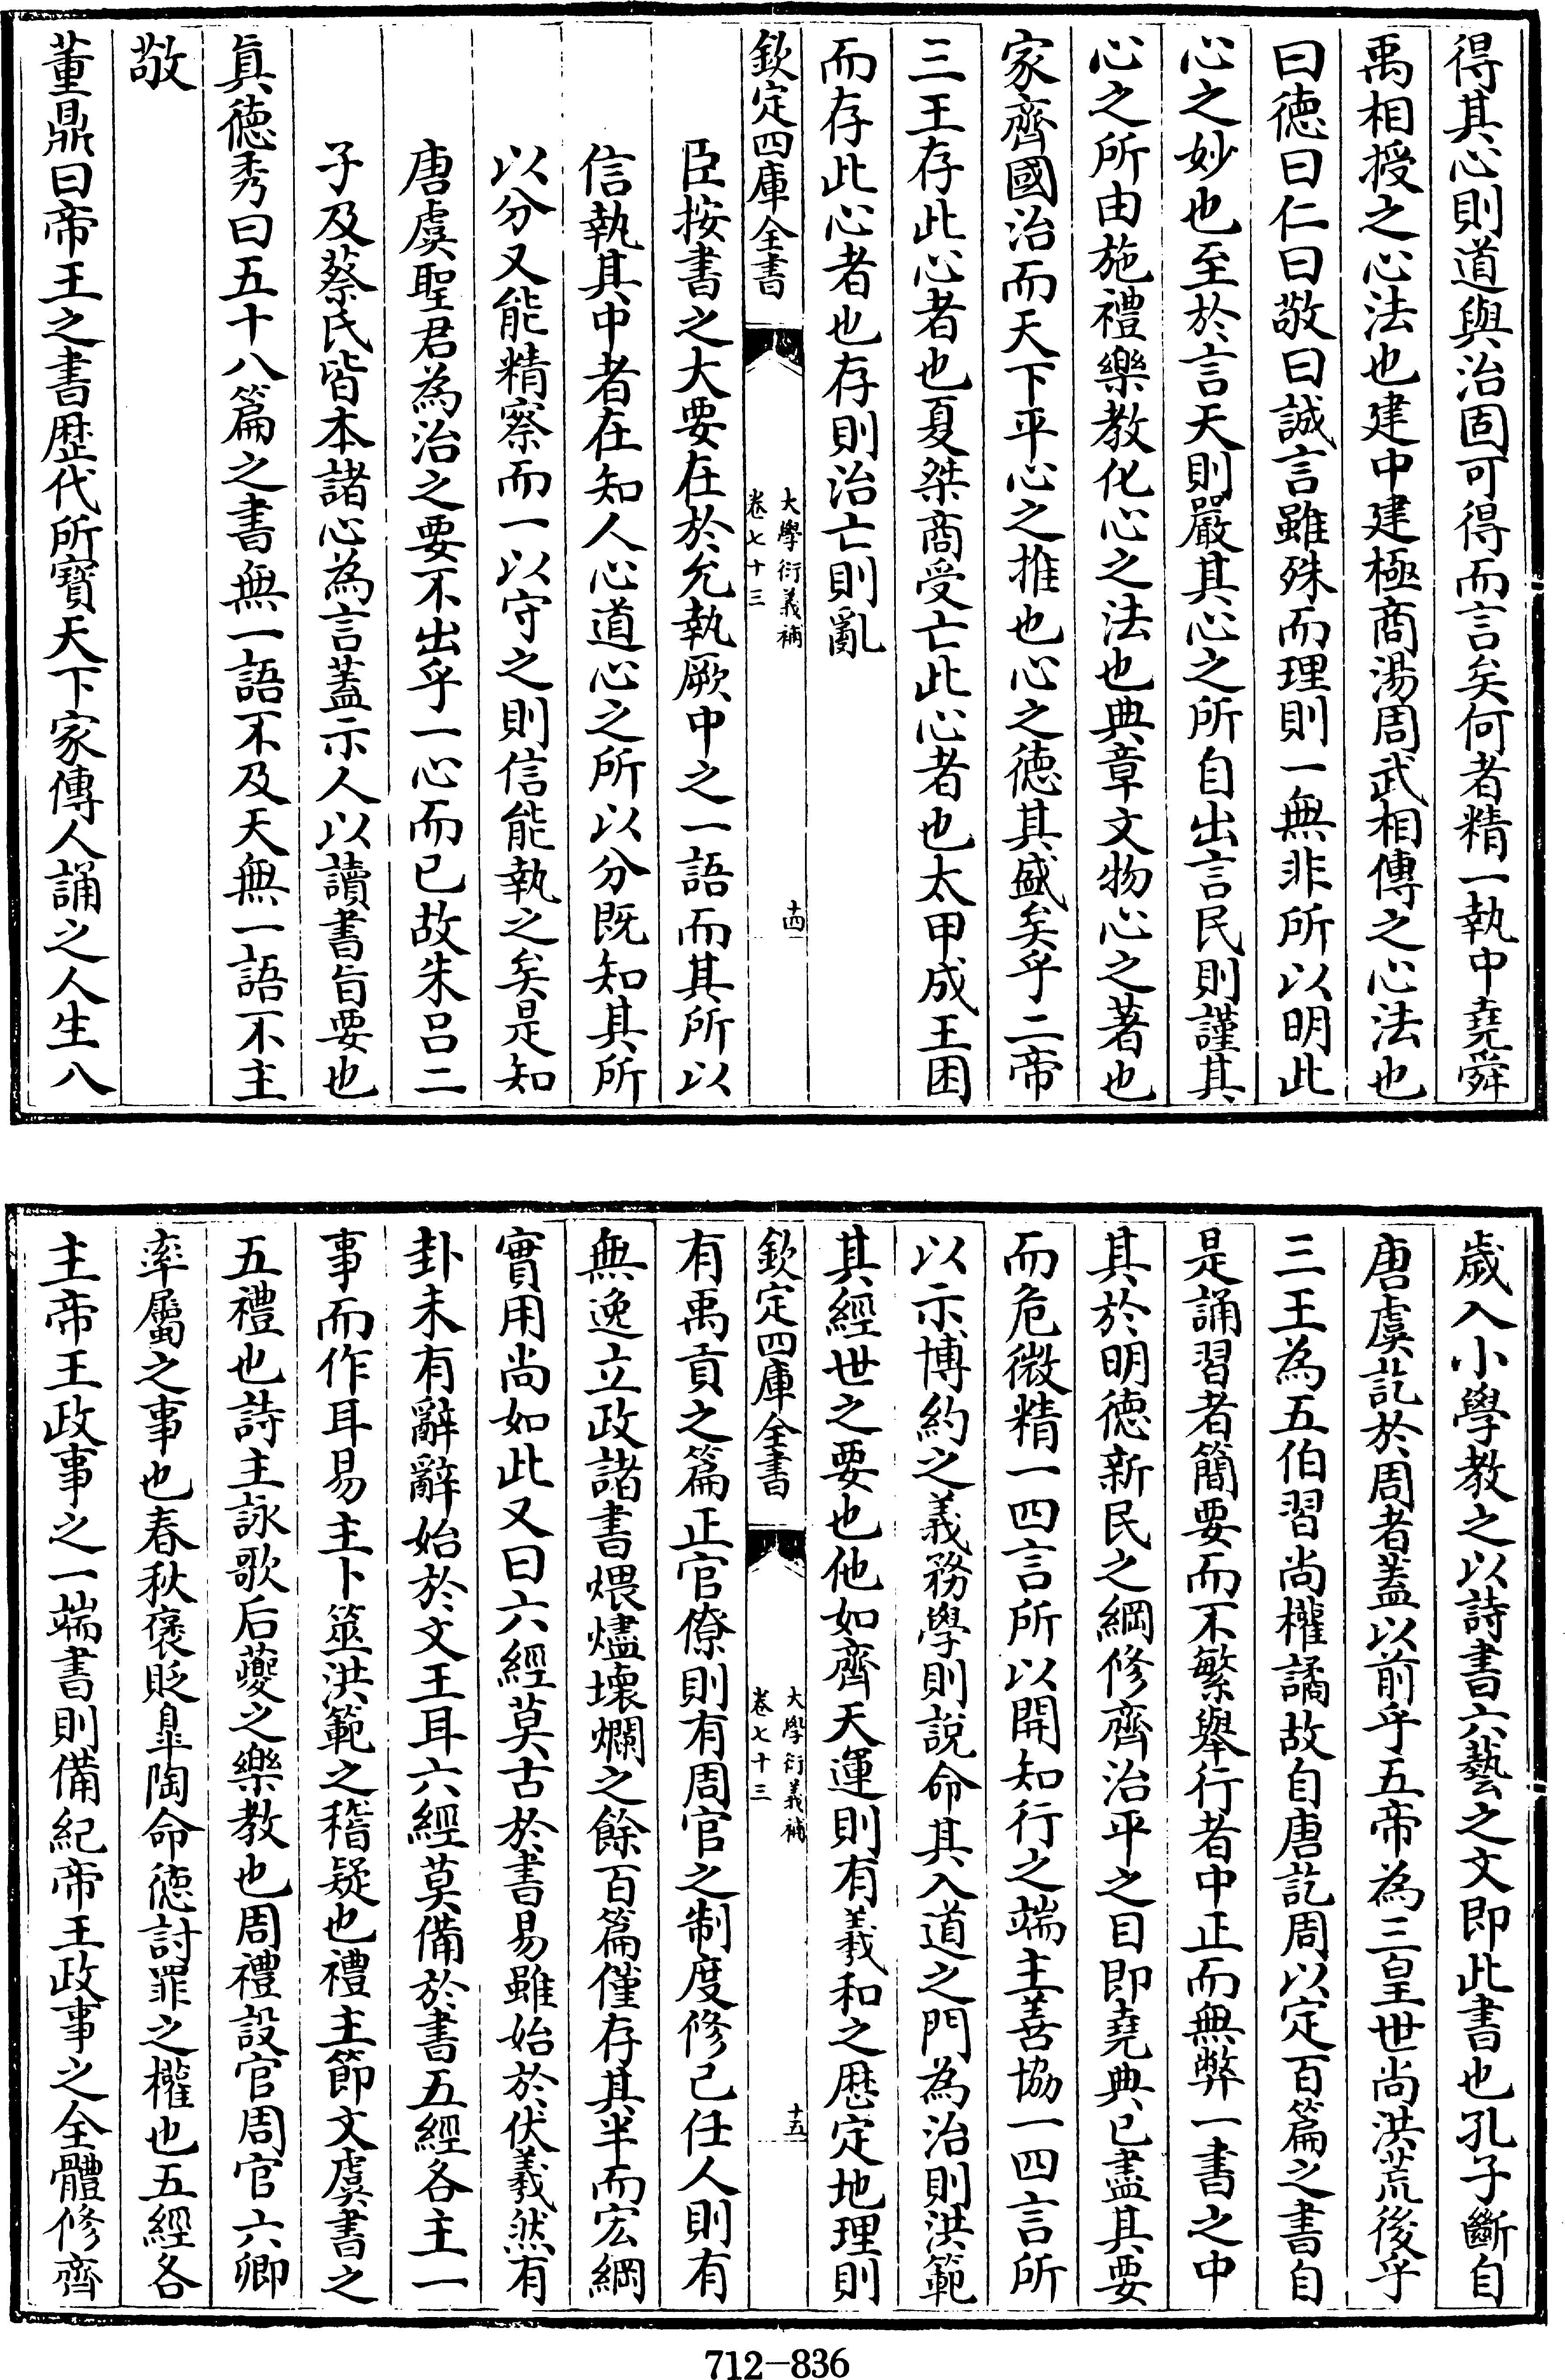 得其心則道與治固可得而言矣何者精一執中堯舜
禹相授之心法也建中建極商湯周武相傳之心法也
曰德曰仁曰敬曰誠言雖殊而理則一無非所以明此
心之妙也至於言天則嚴其心之所自出言民則謹其
心之所由施禮樂教化心之法也典章文物心之著也
家齊國治而天下平心之推也心之德其盛矣乎二帝
三王存此心者也夏桀商受亡此心者也太甲成王困
而存此心者也存則治亡則亂
欽定四庫全書
大學衍義補
卷七十三
十四
臣按書之大要在於允執厥中之一語而其所以
信執其中者在知人心道心之所以分既知其所
以分又能精察而一以守之則信能執之矣是知
唐虞聖君為治之要不出乎一心而已故朱呂二
子及蔡氏皆本諸心為言蓋示人以讀書旨要也
真德秀曰五十八篇之書無一語不及天無一語不主
敬
董鼎曰帝王之書歷代所寶天下家傳人誦之人生八
歲入小學教之以詩書六藝之文即此書也孔子斷自
唐虞訖於周者蓋以前乎五帝為三皇世尚洪荒後乎
三王為五伯習尚權譎故自唐訖周以定百篇之書自
是誦習者簡要而不繁舉行者中正而無弊一書之中
其於明德新民之綱修齊治平之目即堯典已盡其要
而危微精一四言所以開知行之端主善協一四言所
以示博約之義務學則說命其入道之門為治則洪範
其經世之要也他如齊天運則有羲和之厯定地理則
欽定四庫全書
大學衍義補
卷七十三
十五
有禹貢之篇正官僚則有周官之制度修己任人則有
無逸立政諸書煨燼壞爛之餘百篇僅存其半而宏綱
實用尚如此又曰六經莫古於書易雖始於伏羲然有
卦未有辭辭始於文王耳六經莫備於書五經各主一
事而作耳易主卜筮洪範之稽疑也禮主節文虞書之
五禮也詩主詠歌后夔之樂教也周禮設官周官六卿
率屬之事也春秋褒貶臯陶命德討罪之權也五經各
主帝王政事之一端書則備紀帝王政事之全體修齊
712-836